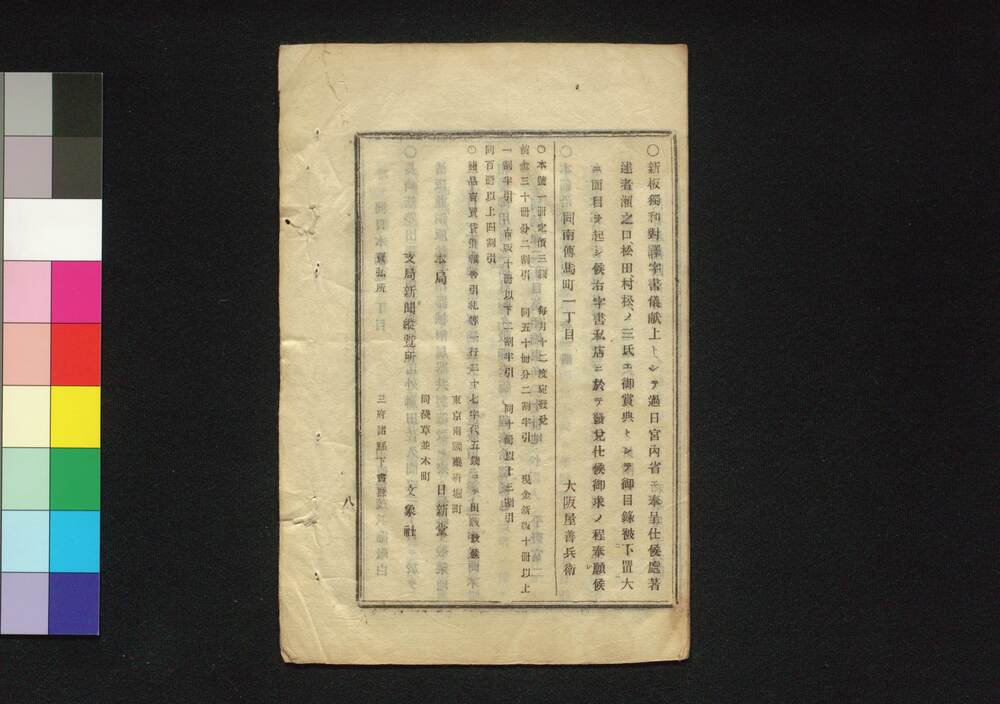 ○新板獨和對譯字書儀献上トシテ過日宮内省ニ奉呈仕候處著
述者瀬之口、松田、村松、ノ三氏エ御賞典トシテ御目録被下置大
ニ面目ヲ起シ候治字書私店ニ於テ發兌仕候御求ノ程奉願候
同南傳馬町一丁目 大阪屋善兵衛
○本號一冊定價三錢 毎月十二度定發兌
前金三十冊分二割引 同五十冊分二割半引 現金新板十冊以上
一割半引 同古版十冊以下一割半引 同十冊以上二割引
同百冊以上四割引
○諸品賣買貸借報告引札等一行二十七字代五錢
東京兩國藥研堀町
本局 日新堂
同淺草並木町
支局新聞縱覽所 文象社
賣弘所 三府諸縣下書肆
八